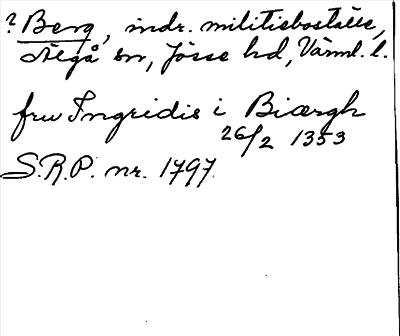 ? Berg, indr. militieboställe,
Älgå sn, Jösse hd, Värml. l.
fru Ingridis i Biærgh
26/2 1353
S.R.P. nr. 1797.